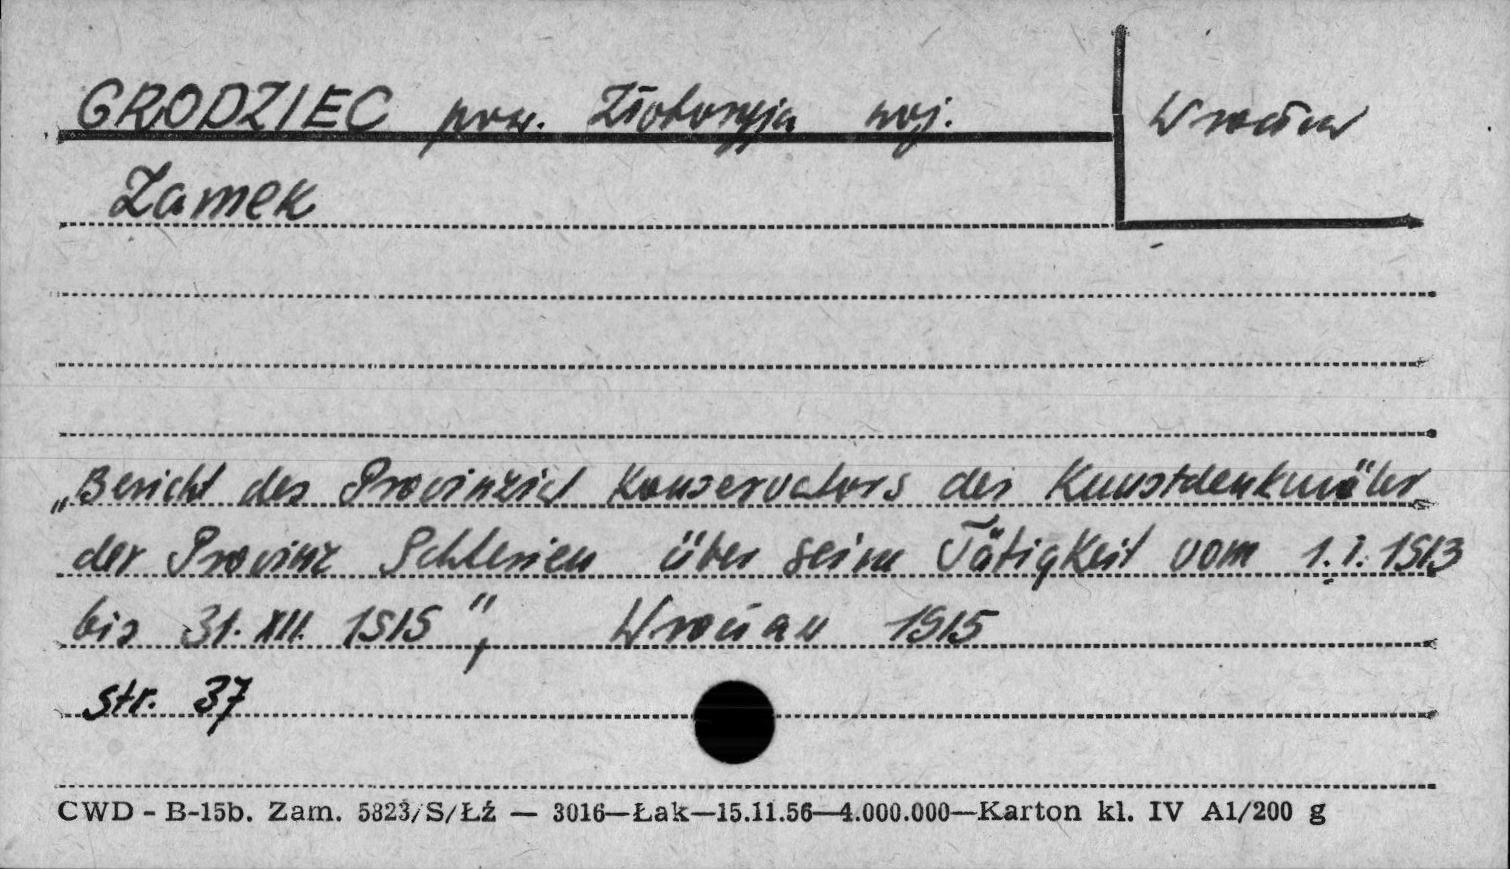 GRODZIEC pow. Złotoryja woj. Wrocław
Zamek
„Bericht des Provinzial Konservators der Kunstdenkmäler
der Provinz Schlesien über seine Tätigkeit vom 1.I.1913
bis 31.XII.1915", Wrocław 1915
str. 37
CWD - B-15b. Zam. 5823/S/Łź — 3016—Łak—15.11.56—4.000.000—Karton kl. IV A1/200 g